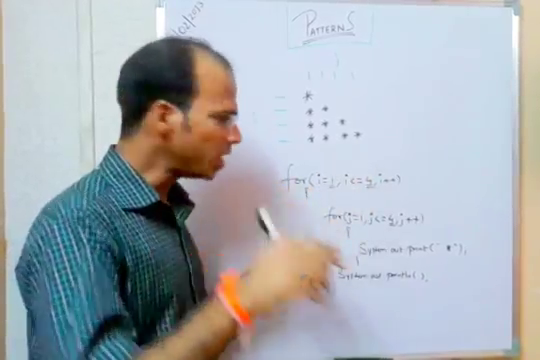 /02/2013
PATTERNS
*
* *
* * *
* * * *
for(i=1,i<=4,i++)
{
for(j=1,j<=4,j++)
{
System out print(" *"),
}
System out println( ),